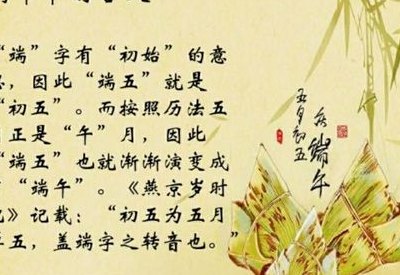 “端”字有“初始”的意
，因此“端五”就是
“初五”。而按照历法五
正是“午”月，因此
“端五”也就渐渐演变成
“端午”。《燕京岁时
》记载：“初五为五月
五，盖端字之转音也。”
端午